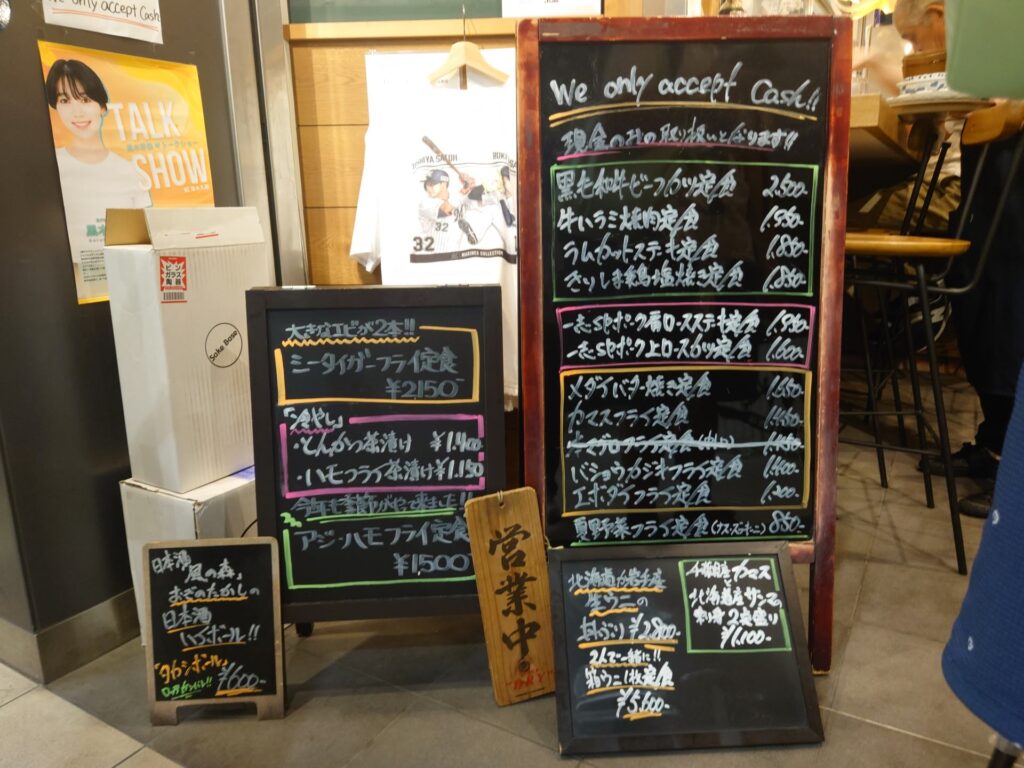 We only accept Cash
TALK
SHOW
ビン
ガラス
陶器
Sake Base
32
32
MARINES COLLECTION
大きなエビが2本!!
ミータイガーフライ定食
¥2150-
「冷やし」
・とんかつ茶漬け ¥1,400-
・ハモフライ茶漬け ¥1,150
今年も季節がやって来ました!!
アジ・ハモフライ定食
¥1,500-
日本酒
「風の森」
日本酒
ハイボール!!
「タカシボール」
¥600-
営業中。
We only accept Cash!!
現金のみの取り扱いと成ります!!
黒毛和牛ビーフカツ定食 2,500-
牛ハラミ焼肉定食
ラムカットステーキ定食 1,850-
一志SPポーク肩ロースステーキ定食
一志SPポーク上ロースカツ定食 1,600-
メダイバター焼き定食
カマスフライ定食
バショウカジキフライ定食 1,400-
エボダイフライ定食
夏野菜フライ定食 850-
北海道か岩手産
生ウニの
丼ぶり ¥2,800-
2人で一緒に!!
箱ウニ1枚定食
¥5,600-
千葉県産カマス
北海道産サンマの
刺身2種盛り
¥1,100-